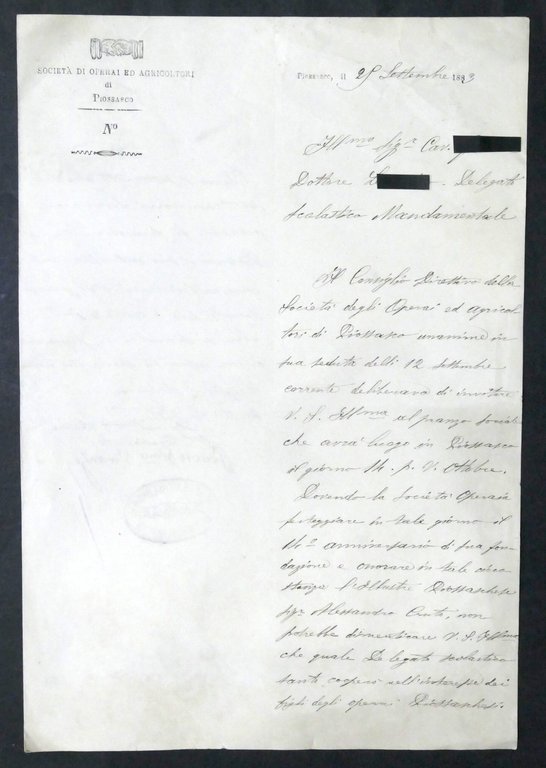 SOCIETÀ DI OPERAI ED AGRICOLTORI
di
PIOSSASCO
N°
Piossasco, il 25 Settembre 1883
Ill.mo Sig.r Cav.
Dottore Delegato
Scolastico Mandamentale
Il Consiglio Direttivo della
Società degli Operai ed Agricol
tori di Piossasco unanime in
sua seduta delli 12 Settembre
corrente deliberava di invitare
V. S. Ill.ma al pranzo sociale
che avrà luogo in Piossasco
il giorno 14. p. v. Ottobre.
Dovendo la Società Operaia
festeggiare in tale giorno il
14° anniversario di sua fon
dazione e onorare in tale circo
stanza l'Illustre Piossaschese
Sig. Alessandro, non
potrebbe dimenticare V. S. Ill.ma
che quale Delegato scolastico
tanto cooperò nell'interesse dei
figli degli operai Piossaschesi.